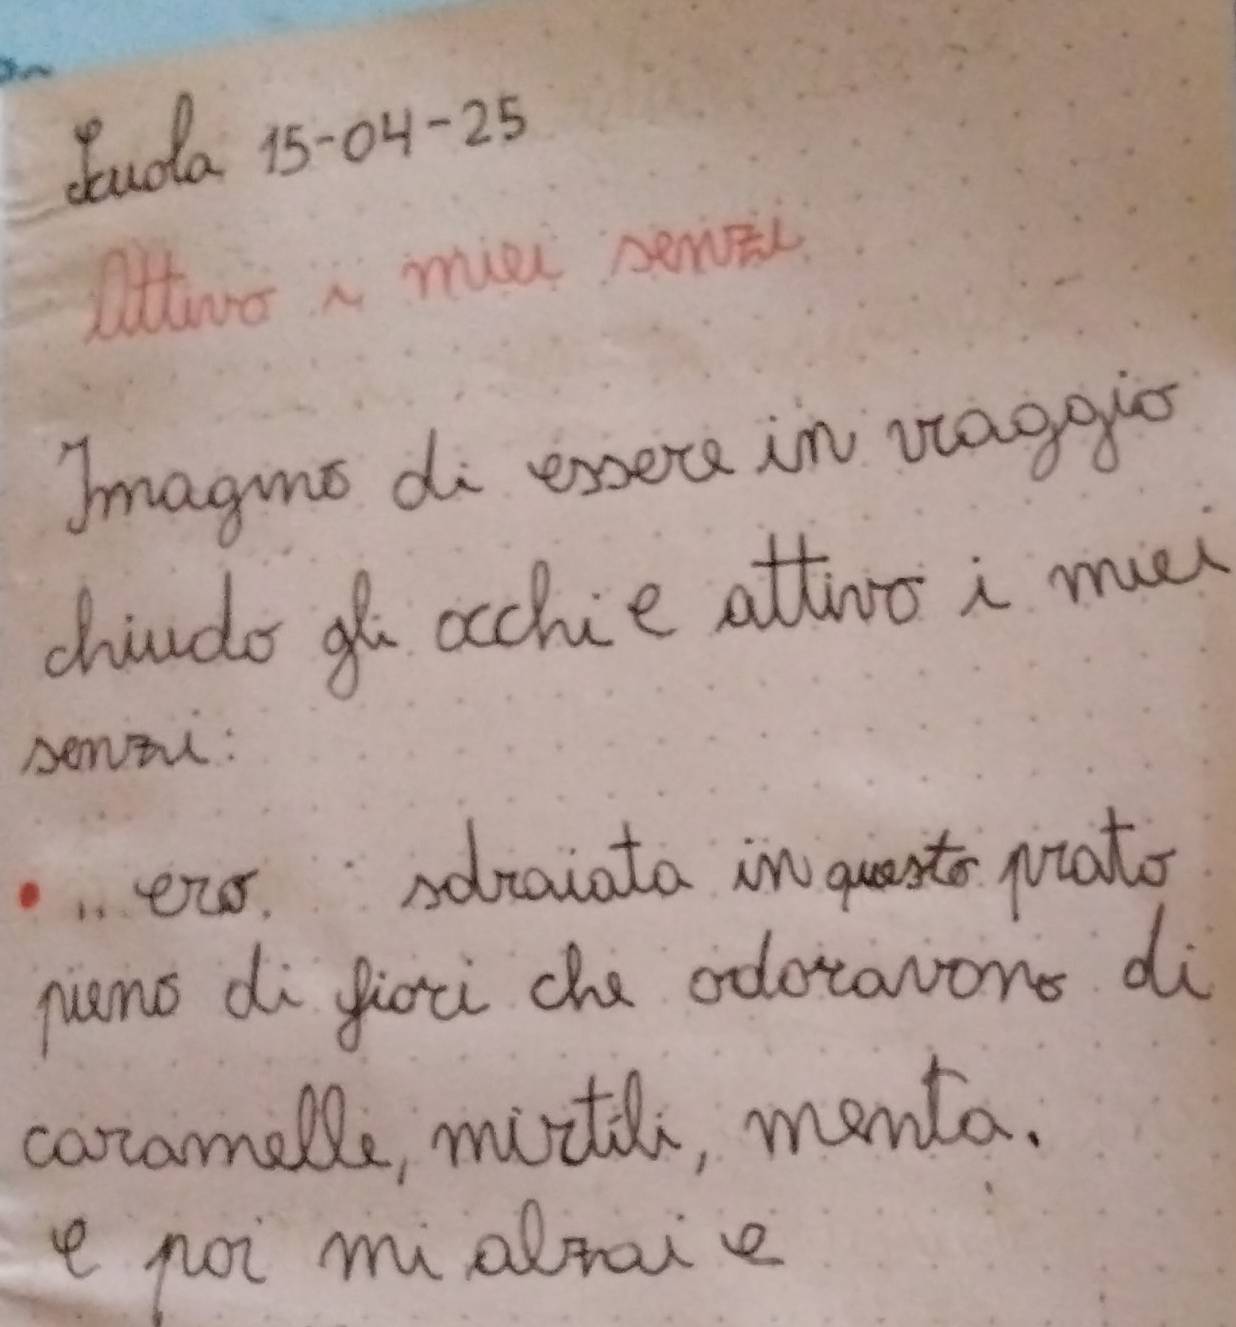 Scuola 15-04-25
Attivo i miei senzi
Imagino di essere in viaggio
chiudo gli occhi e attivo i miei
senzi:
• .. ero sdraiata in questo prato
pieno di fiori che odoravono di
caramelle, mirtili, menta.
e poi mi alzai e